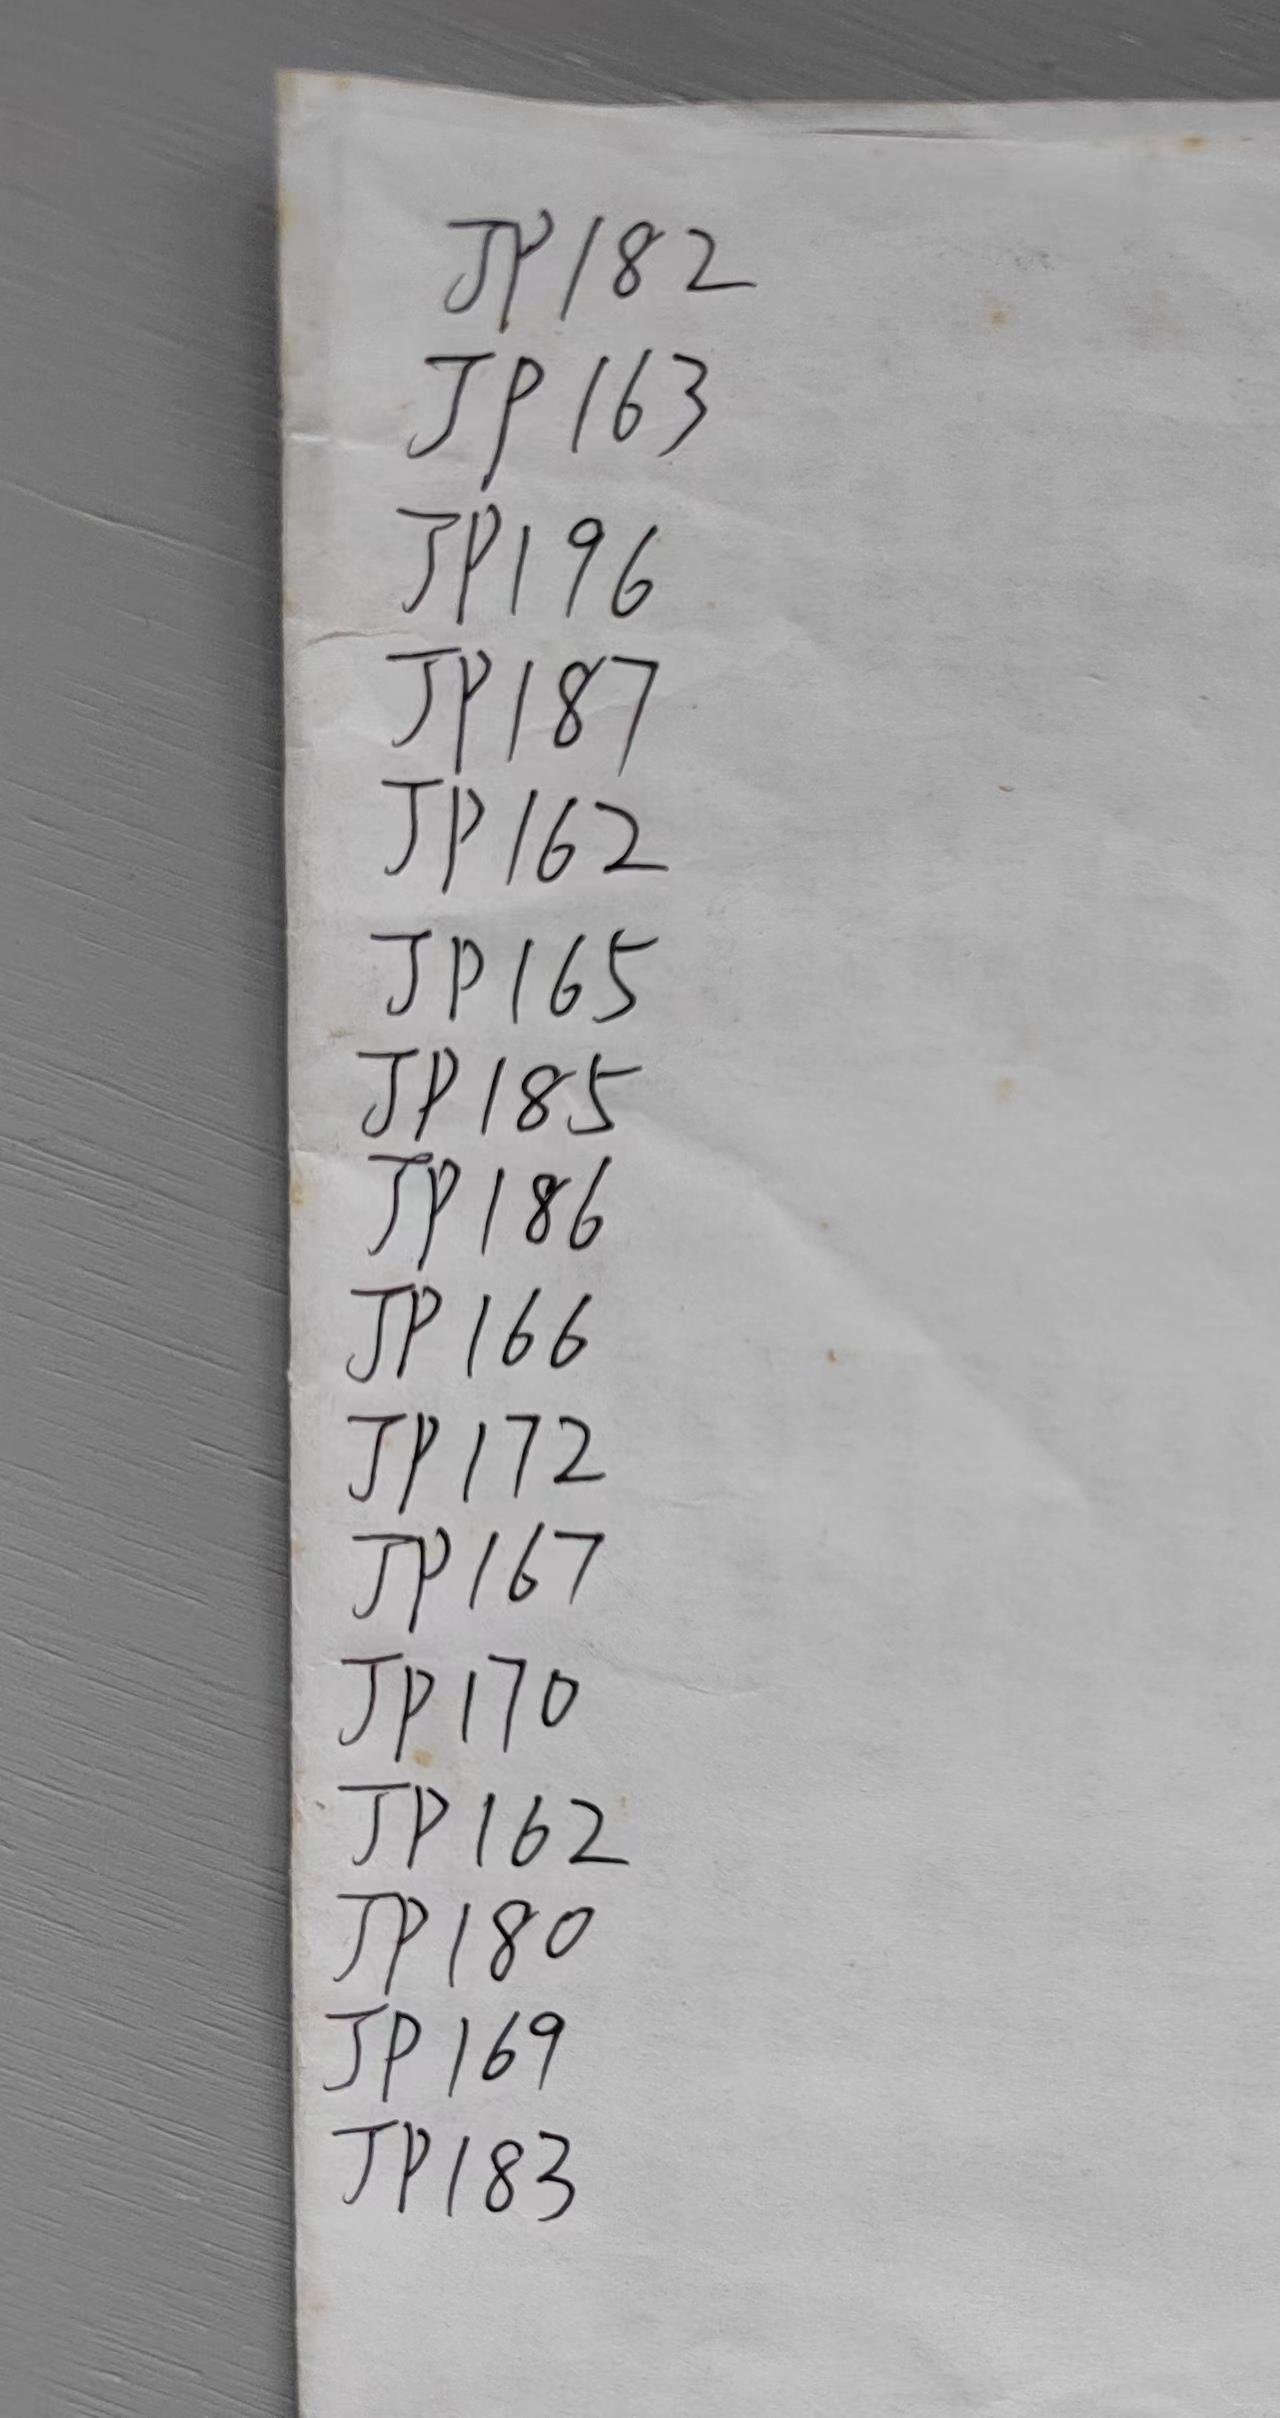 JP182
JP163
JP196
JP187
JP162
JP165
JP185
JP186
JP166
JP172
JP167
JP170
JP162
JP180
JP169
JP183